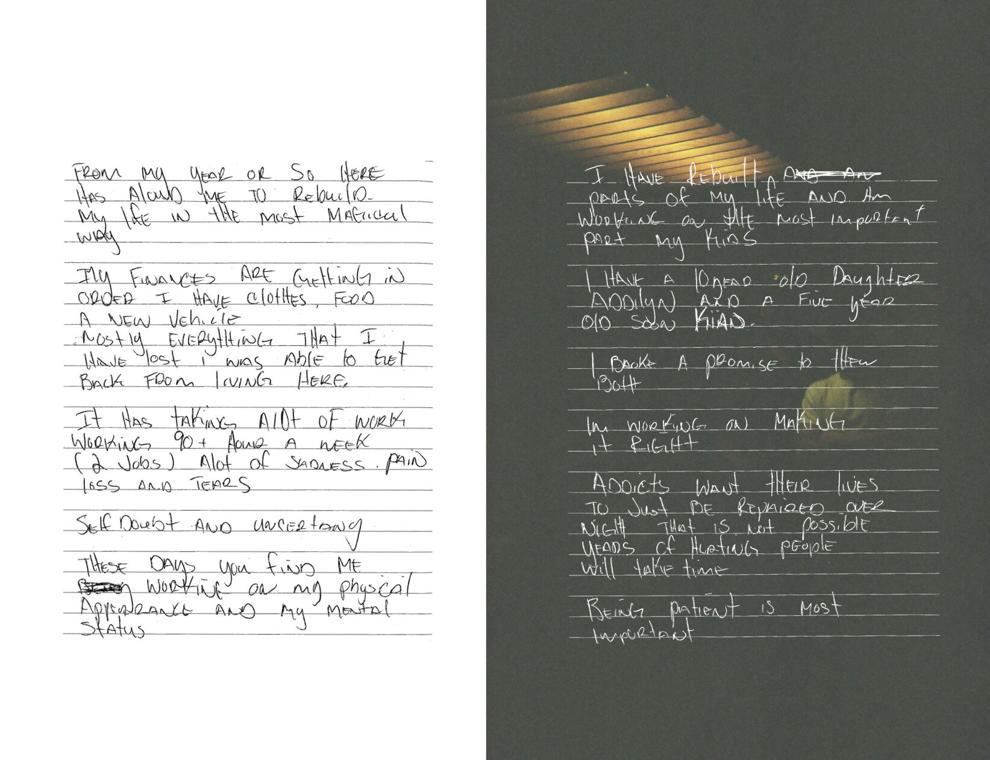 FROM MY YEAR OR SO HERE
HAS Aloud ME TO REBUILD.
MY life IN tHE MOST MAGICAL
WAY
MY FINANCES ARE GETTING IN
ORDER I HAVE clOTHES, FOOD
A NEW VEHICLE
MOSTLY EVERYTHING THAT I
HAVE lost i WAS ABLE to GET
BACK FROM lIVING HERE.
It HAS tAKING AlOt OF WORK
WORKING 90+ HOUR A WEEK
(2 Jobs) Alot of SADNESS. PAIN
loss AND TEARS
SElf Doubt AND UNCERTANY
THESE DAYS you find ME
WORKING on my physical
APPEARANCE AND My MENTAL
STATUS
I HAVE REbuilt A
PARTS OF MY life AND AM
WORKING on tHE MOST IMPORTANT
PART MY KIDS
I HAVE A 10YEAR old DAUGHTER
ADDILYN AND A FIVE yEAR
OlD SOON KHAD.
I BROKE A PROMISE to tHEM
BOTH
IM WORKING ON MAKING
it RIGHT
ADDICTS WANT THEIR lIVES
TO JUST BE REPAIRED OVER
NIGHT THAT IS NOt possiblE
YEARS of HURTING PEOPLE
Will tAKE timE
BEING PATIENT IS MOST
IMPORTANT